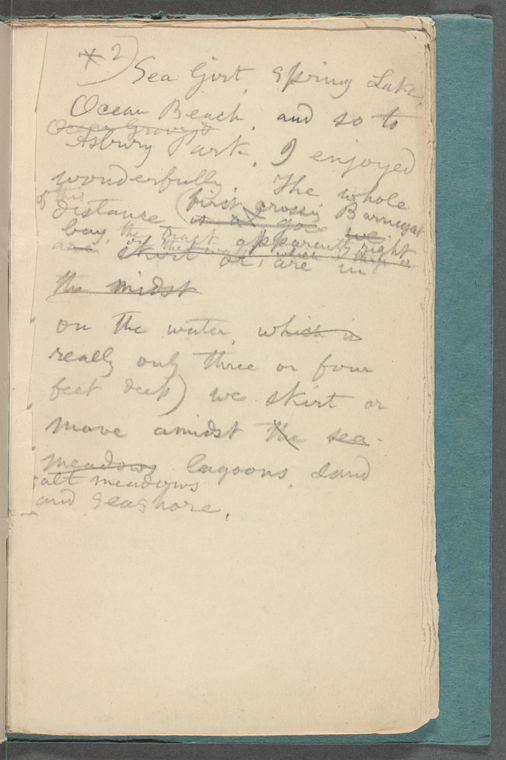 * 2) Sea Girt, Spring Lake,
Ocean Beach, and so to
Ocean Grove &
Asbury Park. I enjoyed
wonderfully. The whole
of this
distance (first crossing Barnegat
is as you we
bay, the track apparently right
are skirt or are in
the midst
on the water, which is
really only three or four
feet deep) we skirt or
move amidst the sea-
meadows lagoons, sand
salt meadows
and seashore.